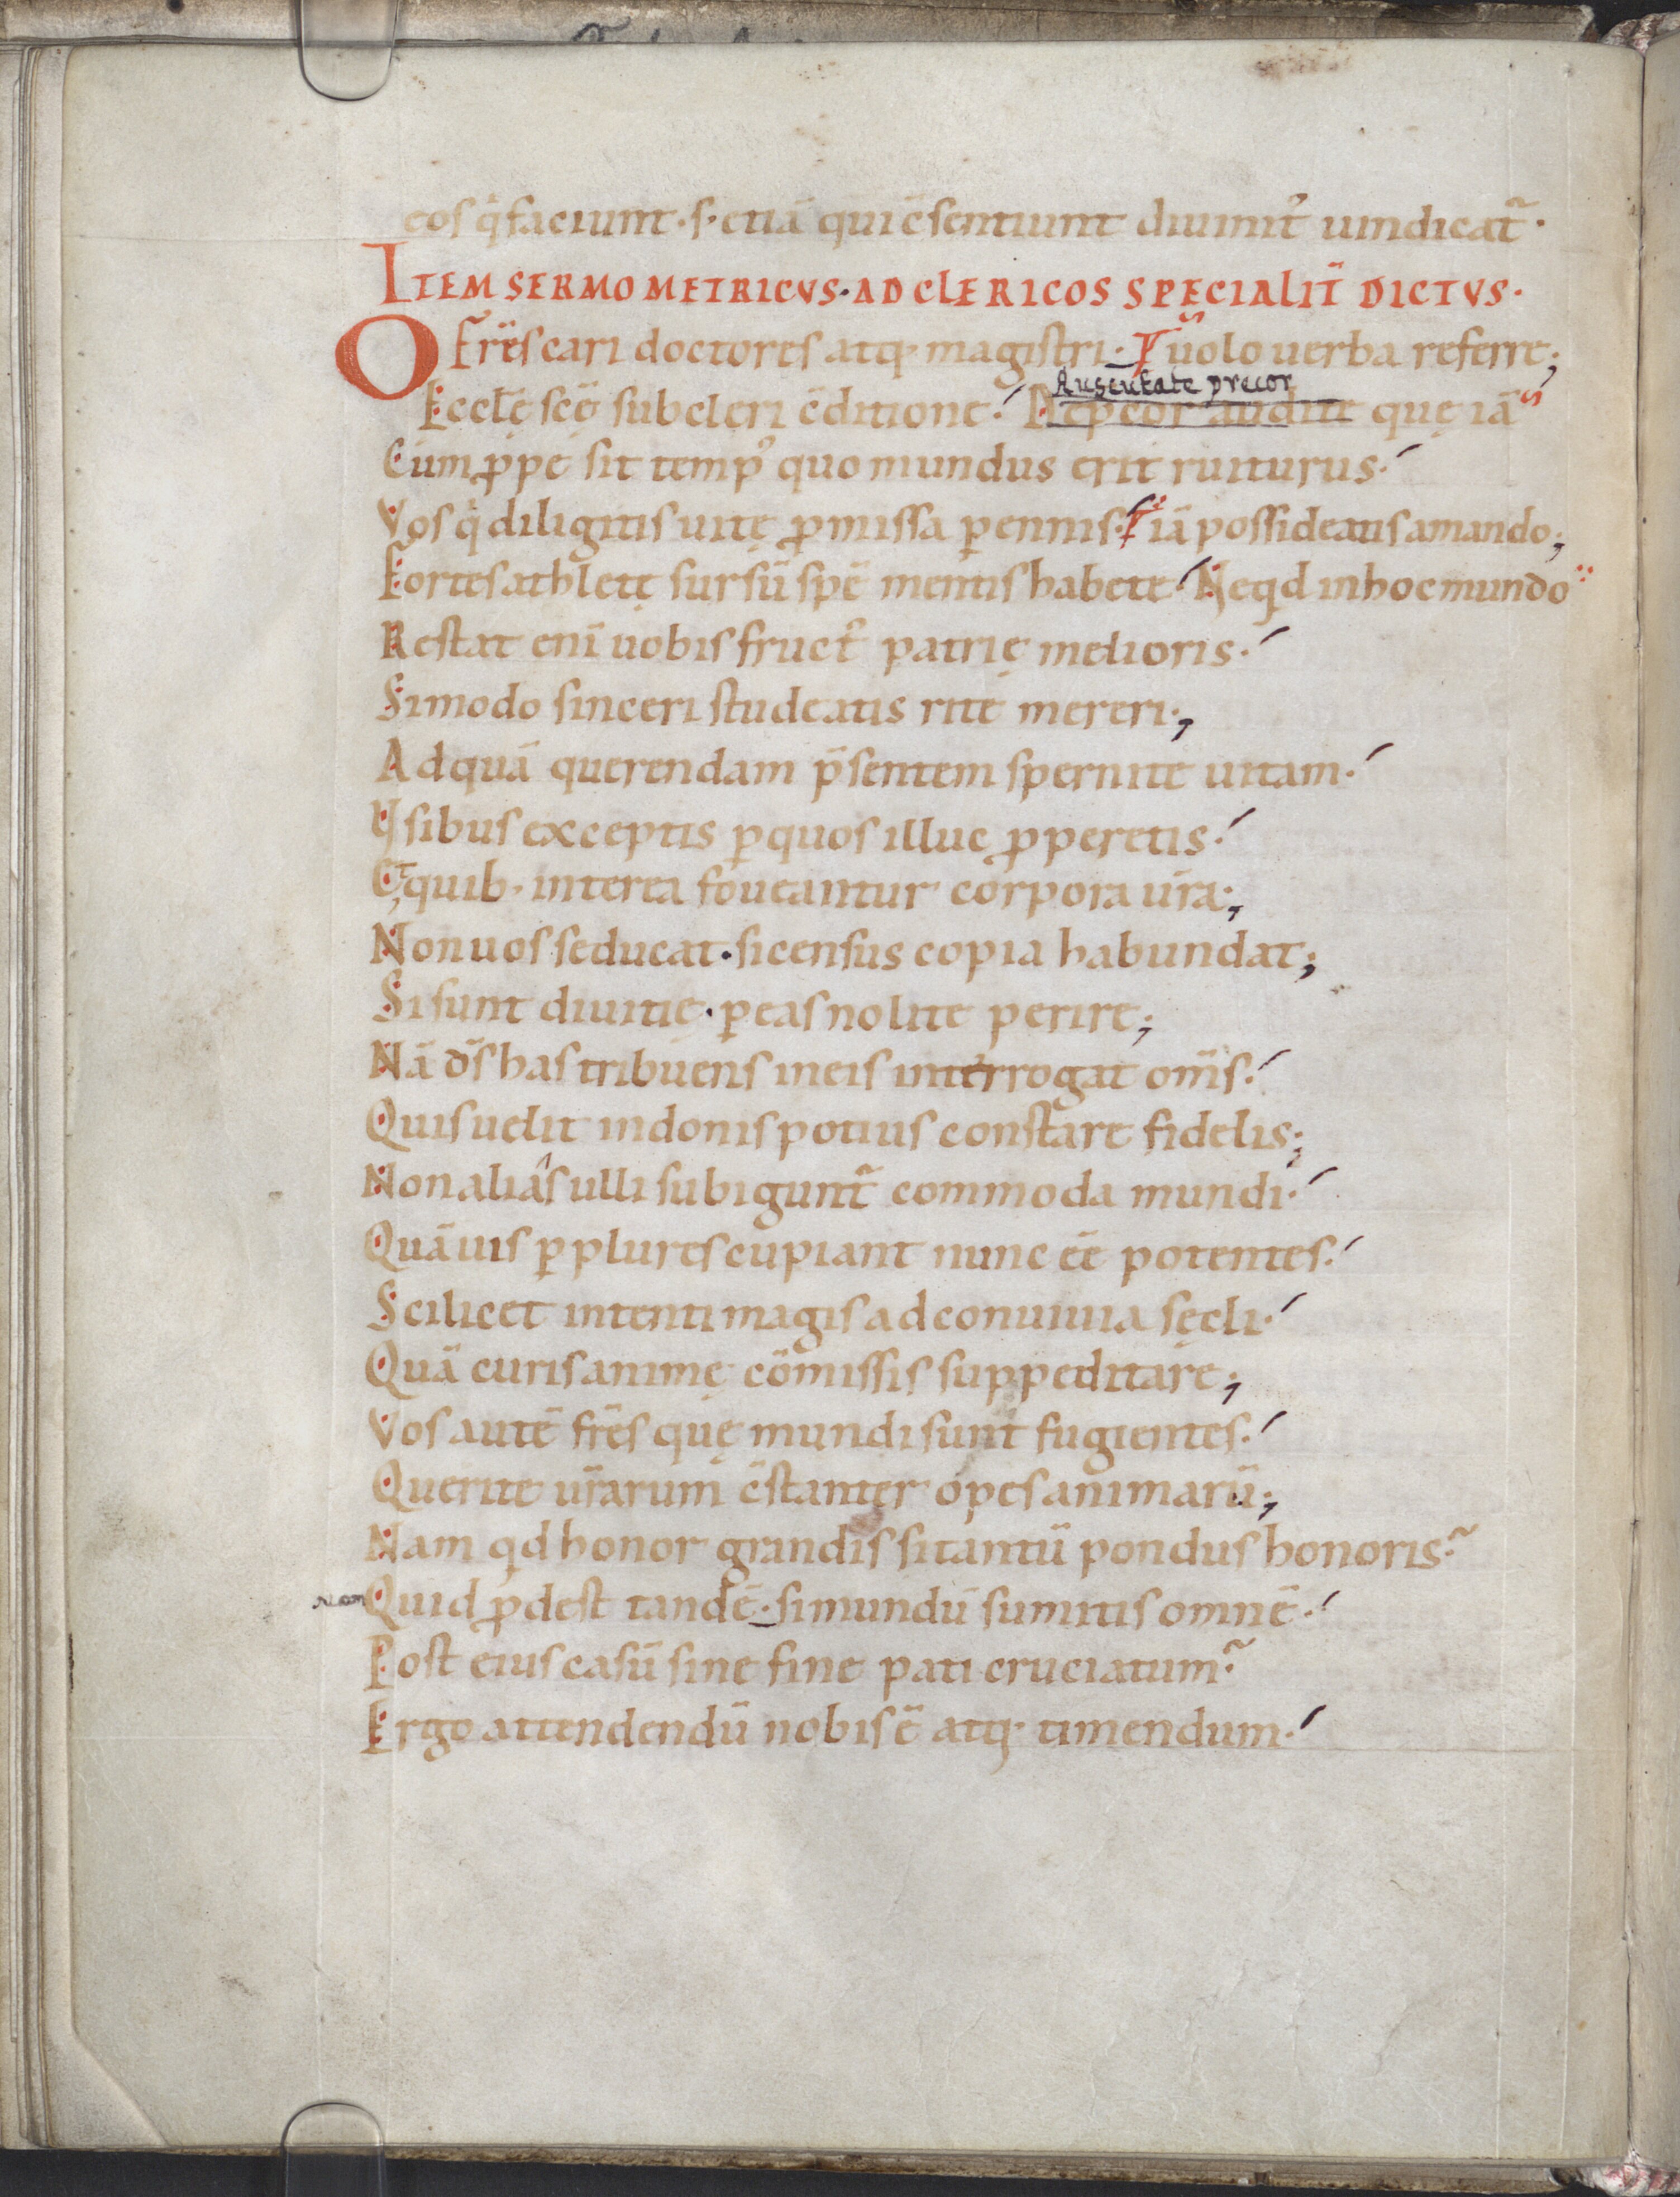 eos q̇ faciunt· s· etiā qui c̄sentiunt diuinit᷑ uindicat᷑·
ITEM SERMO METRICVS· AD CLERICOS SPECIALIT̄ DICTVS·
O Fr̄es cari doctores atq; magistri· uolo uerba referre;
Auscultate precor
Eccl̄ę sc̄ę sub cleri c̄ditione· p̄cor audite quę iā
Cum ꝓpe sit temp᷒ quo mundus erit ruiturus·
Vos q̇ diligitis uitę ꝓmissa ꝑennis· iā possideatis amando;
Fortes athletę sursū spē mentis habete· Neqd in hoc mundo
Restat enī uobis fruct᷒ patrię melioris·
Si modo sinceri studeatis rite mereri·,
Ad quā querendam p̄sentem spernite uitam·
Vsibus exceptis ꝑ quos illuc ꝓperetis·
E quib· interea foueantur corpora ur̄a;
Non uos seducat· si census copia habundat;
Si sunt diuitię· ꝑ eas nolite perire;
Nā dn̄s has tribuens in eis interrogat om̄s·
Quis uelit in donis potius constare fidelis;
Non aliâs ulli subigunt᷑ commoda mundi·
Quāuis ꝑplures cupiant nunc eē potentes·
Scilicet intenti magis ad conuiuia sęcli·
Quā curis animę cōmissis suppeditare;
Vos autē fr̄es quę mundi sunt fugientes·
Querite ur̄arum c̄stanter opes animarū;
Nam qd honor grandis si tantū pondus honoris·
nam Quid ꝓdest tandē· si mundū sumitis omnē·
Post eius casū sine fine pati cruciatum·
Ergo attendendū nobis ē atq; timendum·